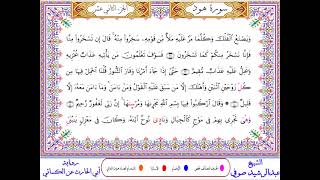 سورة هود
الجزء الثاني عشر
وَيَصْنَعُ ٱلْفُلْكَ وَكُلَّمَا مَرَّ عَلَيْهِ مَلَأٌ مِّن قَوْمِهِۦ سَخِرُوا۟ مِنْهُ قَالَ إِن تَسْخَرُوا۟ مِنَّا
فَإِنَّا نَسْخَرُ مِنكُمْ كَمَا تَسْخَرُونَ فَسَوْفَ تَعْلَمُونَ مَن يَأْتِيهِ عَذَابٌ يُخْزِيهِ
وَيَحِلُّ عَلَيْهِ عَذَابٌ مُّقِيمٌ حَتَّىٰ إِذَا جَآءَ أَمْرُنَا وَفَارَ ٱلتَّنُّورُ قُلْنَا ٱحْمِلْ فِيهَا مِن
كُلِّ زَوْجَيْنِ ٱثْنَيْنِ وَأَهْلَكَ إِلَّا مَن سَبَقَ عَلَيْهِ ٱلْقَوْلُ وَمَنْ ءَامَنَ وَمَآ ءَامَنَ مَعَهُۥٓ إِلَّا
قَلِيلٌ وَقَالَ ٱرْكَبُوا۟ فِيهَا بِسْمِ ٱللَّهِ مَجْر۪ىٰهَا وَمُرْسَىٰهَآ إِنَّ رَبِّى لَغَفُورٌ رَّحِيمٌ
وَهْىَ تَجْرِى بِهِمْ فِى مَوْجٍ كَٱلْجِبَالِ وَنَادَىٰ نُوحٌ ٱبْنَهُۥ وَكَانَ فِى مَعْزِلٍ يَٰبُنَىِّ
الشيخ
عبدالرشيد صوفي
برواية
أبي الحارث عن الكسائي